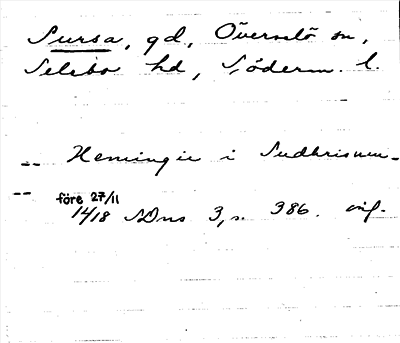 Sursa, gd, Överselö sn,
Selebo hd, Söderm. l.
-- Hemingie i Sudhrisum-
-- före 27/11
1418 SDns 3, s. 386. orig.